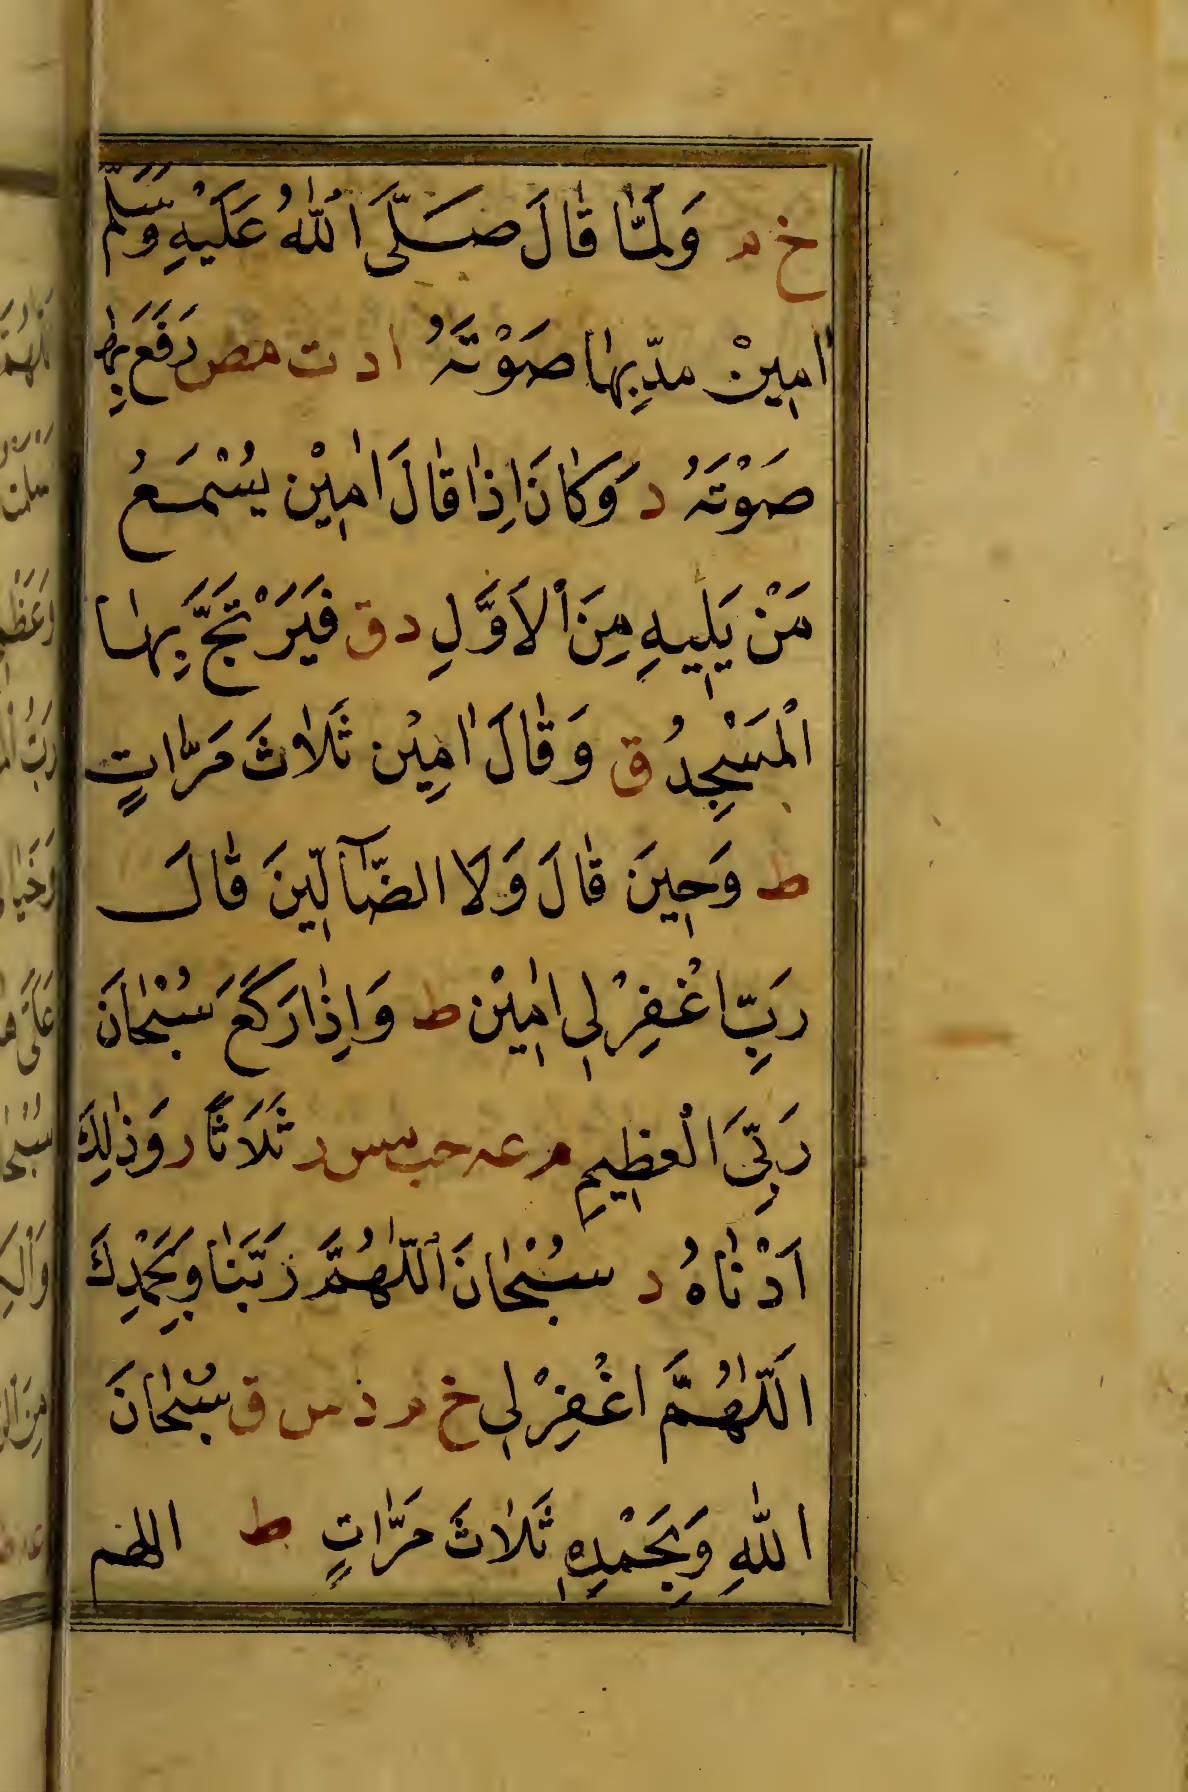 خ م وَلَمَّا قَالَ صَلَّى اللهُ عَلَيْهِ وَسَلَّمَ
اٰمِينْ مدّ بِهَا صَوْتَهُ ا د ت مص رَفَعَ بِهَا
صَوْتَهُ د وَكَانَ اِذَا قَالَ اٰمِيْن يُسْمَعُ
مَنْ يَلِيهِ مِنَ الْاَوَّلِ د ق فَيَرْتَجَّ بِهَا
الْمَسْجِدُ ق وَقَالَ اٰمِيْن ثَلَاثَ مَرَّاتٍ
ط وَحِينَ قَالَ وَلَا الضَّآلِّينَ قَالَ
رَبِّ اغْفِرْ لِي اٰمِيْن ط وَاِذَا رَكَعَ سُبْحَانَ
رَبِّيَ الْعَظِيمِ م عه حب مس ر ثَلَاثًا ر وَذٰلِكَ
اَدْنَاهُ د سُبْحَانَكَ اللّٰهُمَّ رَبَّنَا وَبِحَمْدِكَ
اَللّٰهُمَّ اغْفِرْ لِي خ م د س ق سُبْحَانَ
اللهِ وَبِحَمْدِهِ ثَلَاثَ مَرَّاتٍ ط
اللهم